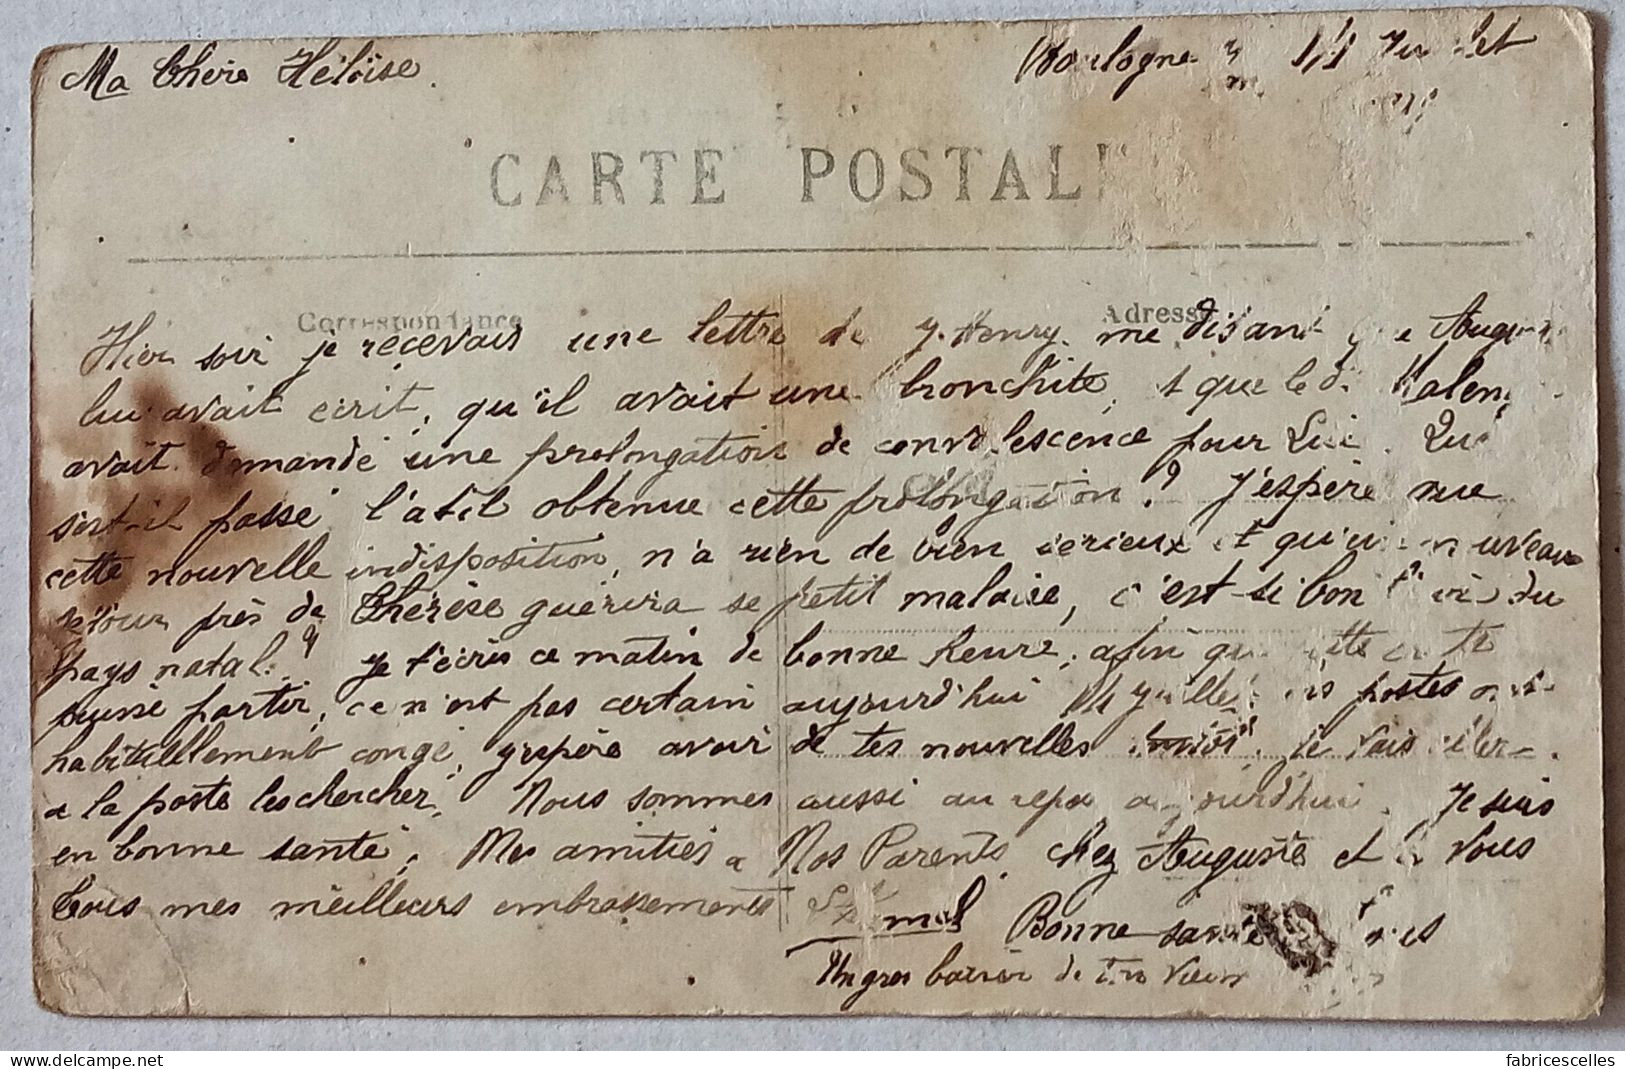 Ma Chère Héloïse.
Boulogne 14 Juillet
CARTE POSTALE
Correspondance
Adresse
Hier soir je recevais une lettre de J. Henry. me disant que Auguste
lui avait écrit, qu'il avait une bronchite, et que le d. Valen
avait demandé une prolongation de convalescence pour Lui. Que
s'est-il passé l'at-il obtenue cette prolongation? J'espère que
cette nouvelle indisposition, n'a rien de bien serieux et qu'un nouveau
séjour près de Thérèse guérira se petit malaise, c'est si bon l'air du
pays natal? Je t'écris ce matin de bonne heure, afin que cette carte
puisse partir, ce n'est pas certain aujourd'hui 14 Juillet les postes ont
habituellement congé, j'espère avoir de tes nouvelles je vais aller
a la poste les chercher, Nous sommes aussi au repos aujourd'hui. Je suis
en bonne santé, Mes amitiés a Nos Parents, chez Auguste et à Vous
Tous mes meilleurs embrassements mel Bonne santé
Un gros baiser de ton vieux
fabricescelles